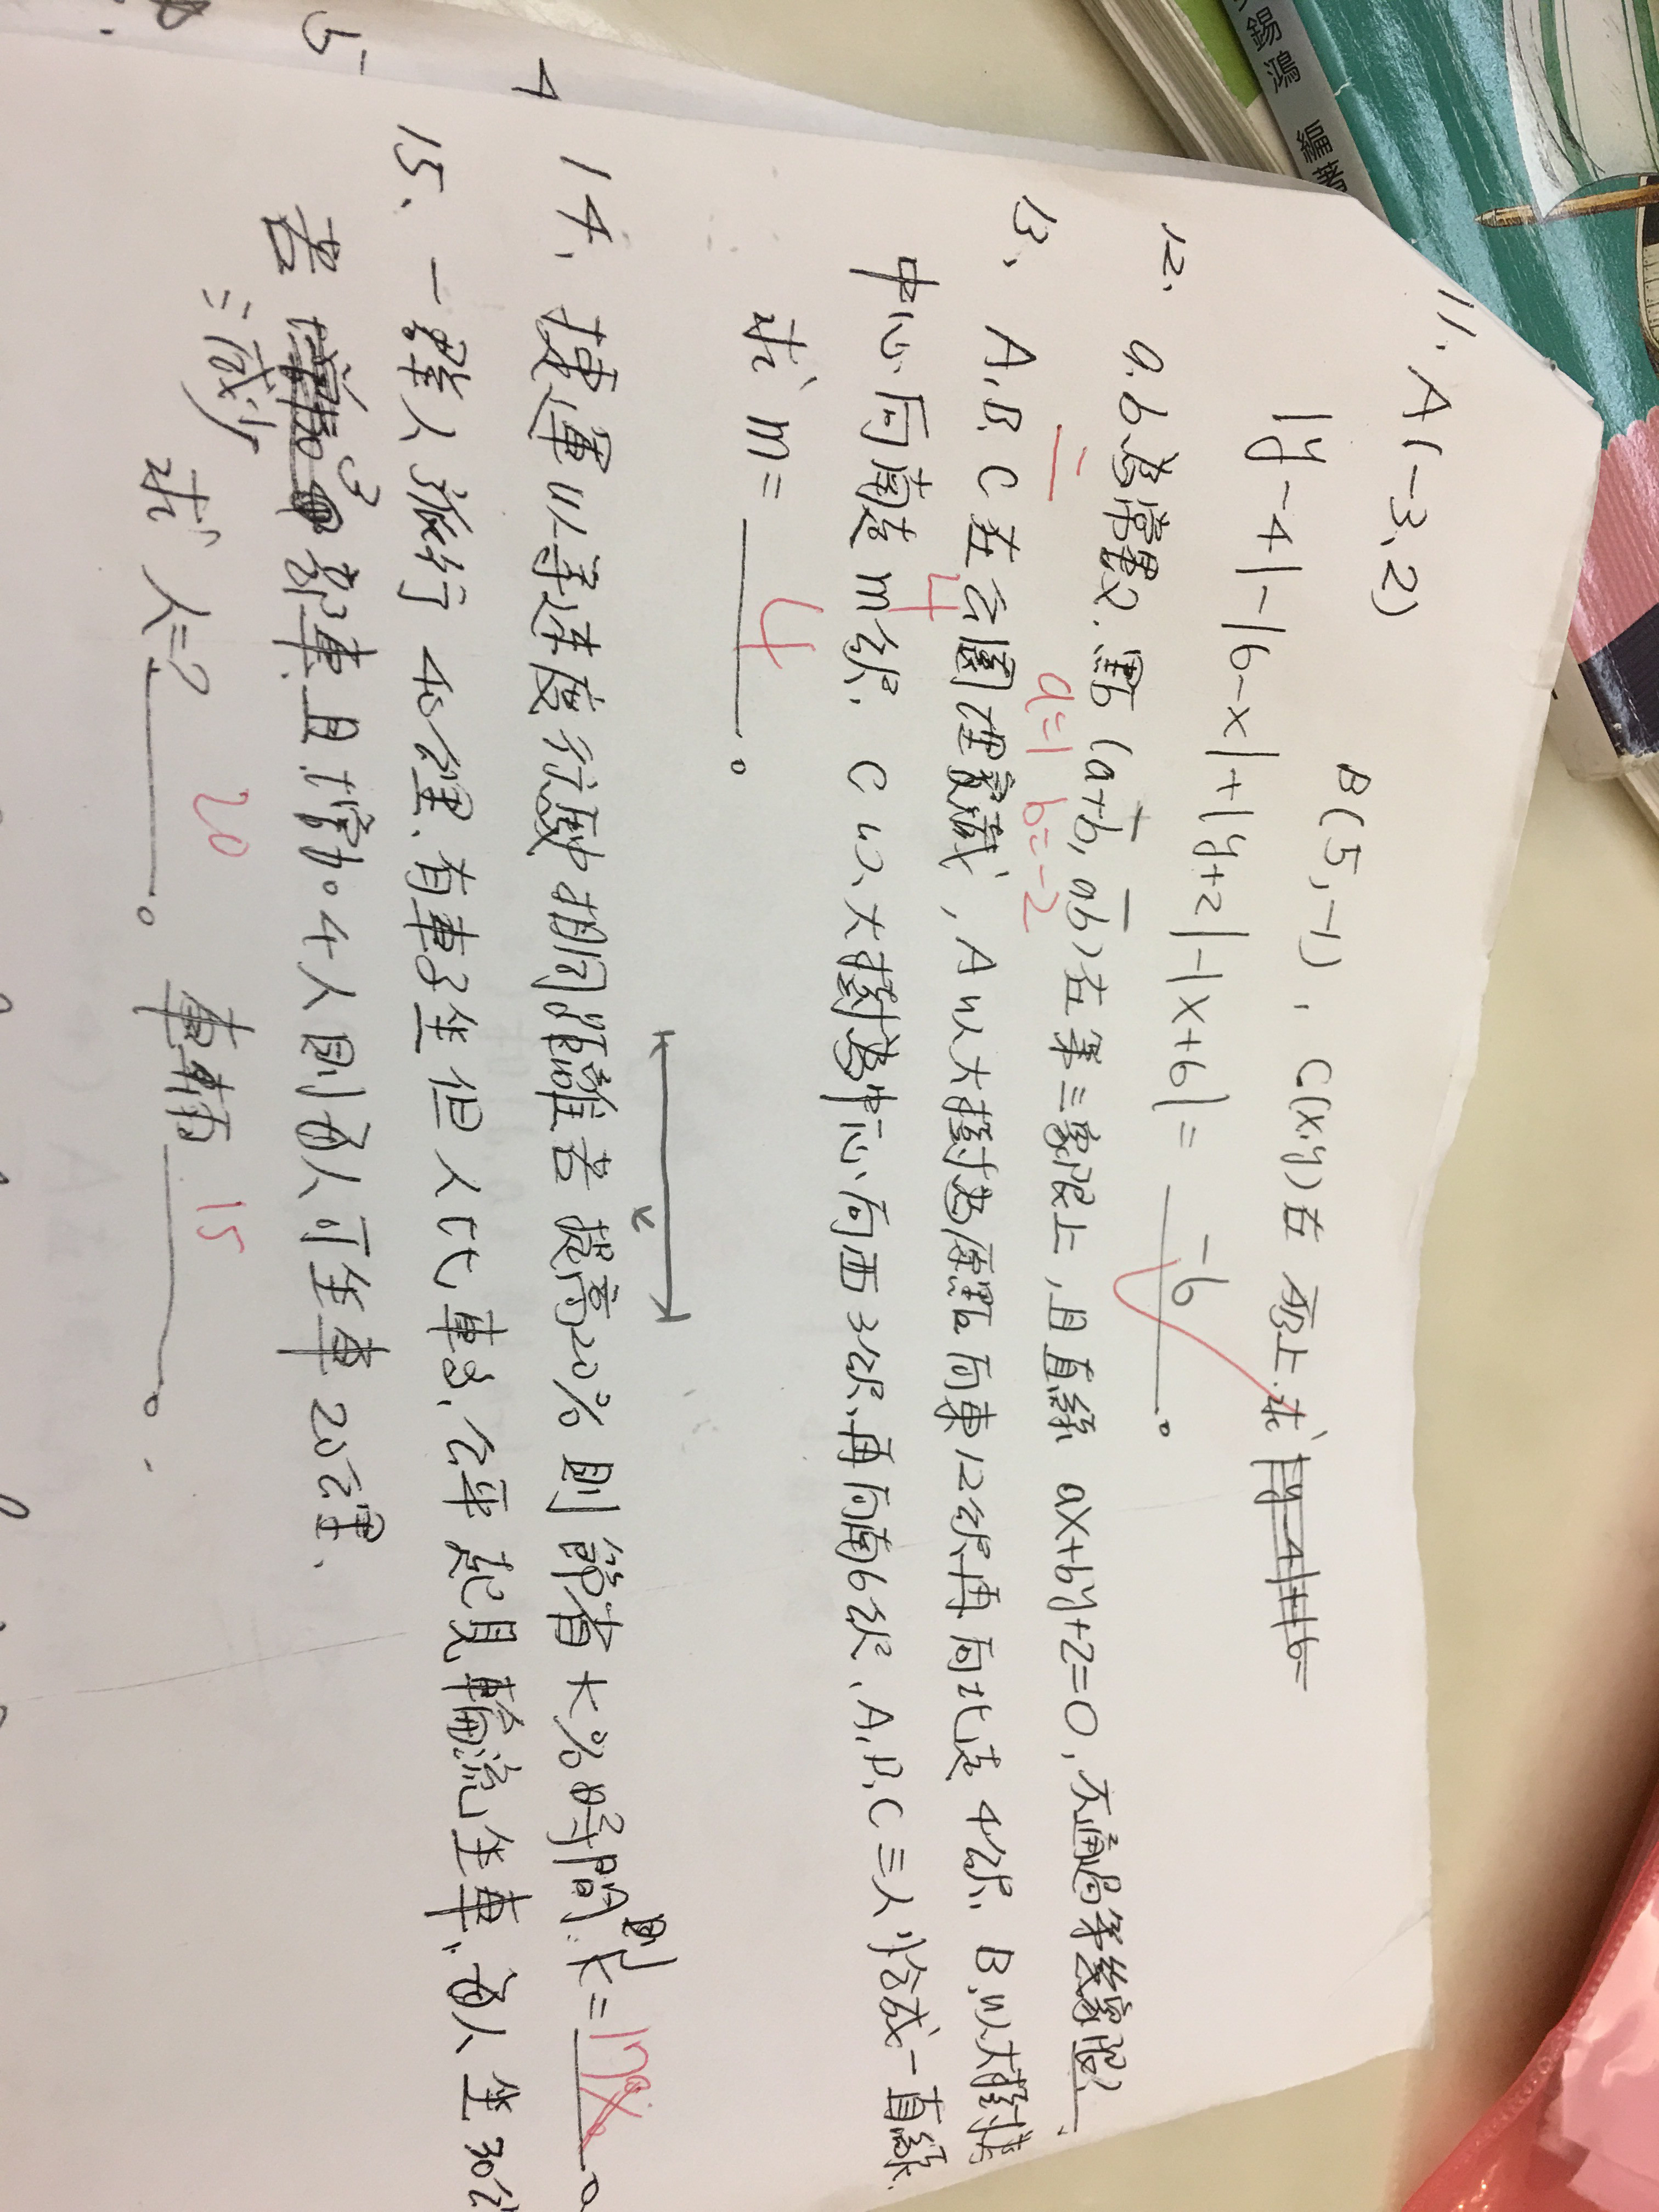 錫鴻 編著
11、A(-3、2) B(5,-1), C(x,y)在 上.求
|y-4|-|6-x|+|y+2|-|x+6|= -6 。
12、a.b為常數.點(a+b, ab)在第三象限上,且直線 ax+by+2=0,不通過第幾象限
二 a=1 b=-2
13、A,B,C在公園埋寶藏,A以大樹為原點向東12公尺再向北走4公尺,B以大樹為
中心向南走m公尺. C以大樹為中心向西3公尺再向南6公尺、A,B,C三人恰成一直線
4
求m= 4 。
14、捷運以等速度行駛相同距離若提高20%則節省k%時間.則k= 。
15、一群人旅行40公里.有車子坐但人比車多、公平起見輪流坐車,每人坐30公
若 3 部車且增加4人則每人可坐車20公里、
減少
求人=? 20 。 車輛 15 。